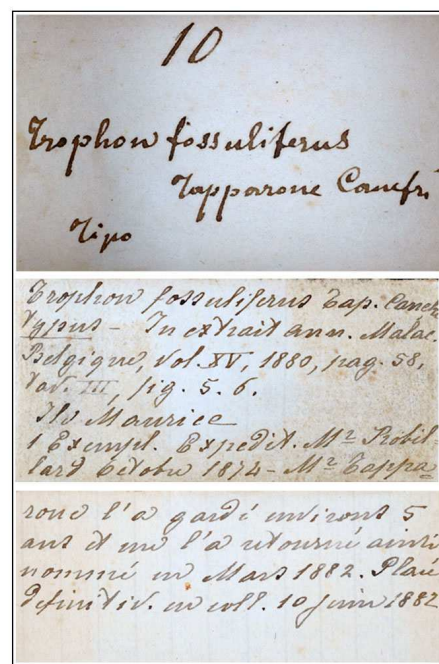 10
Trophon fossuliferus
Tapparone Canefri
Tipo
Trophon fossuliferus Tap. Canef.
Typus - In extrait ann. Malac.
Belgique, Vol. XV, 1880, pag. 58,
Tav. III, fig. 5. 6.
Ile Maurice
1 Exempl. Expedit. Mr Robil
lard Octobre 1874 - Mr Tappa=
rone l'a gardé environs 5
ans et me l'a retourné ainsi
nommé en Mars 1882. Placé
definitiv. en coll. 10 Juin 1882